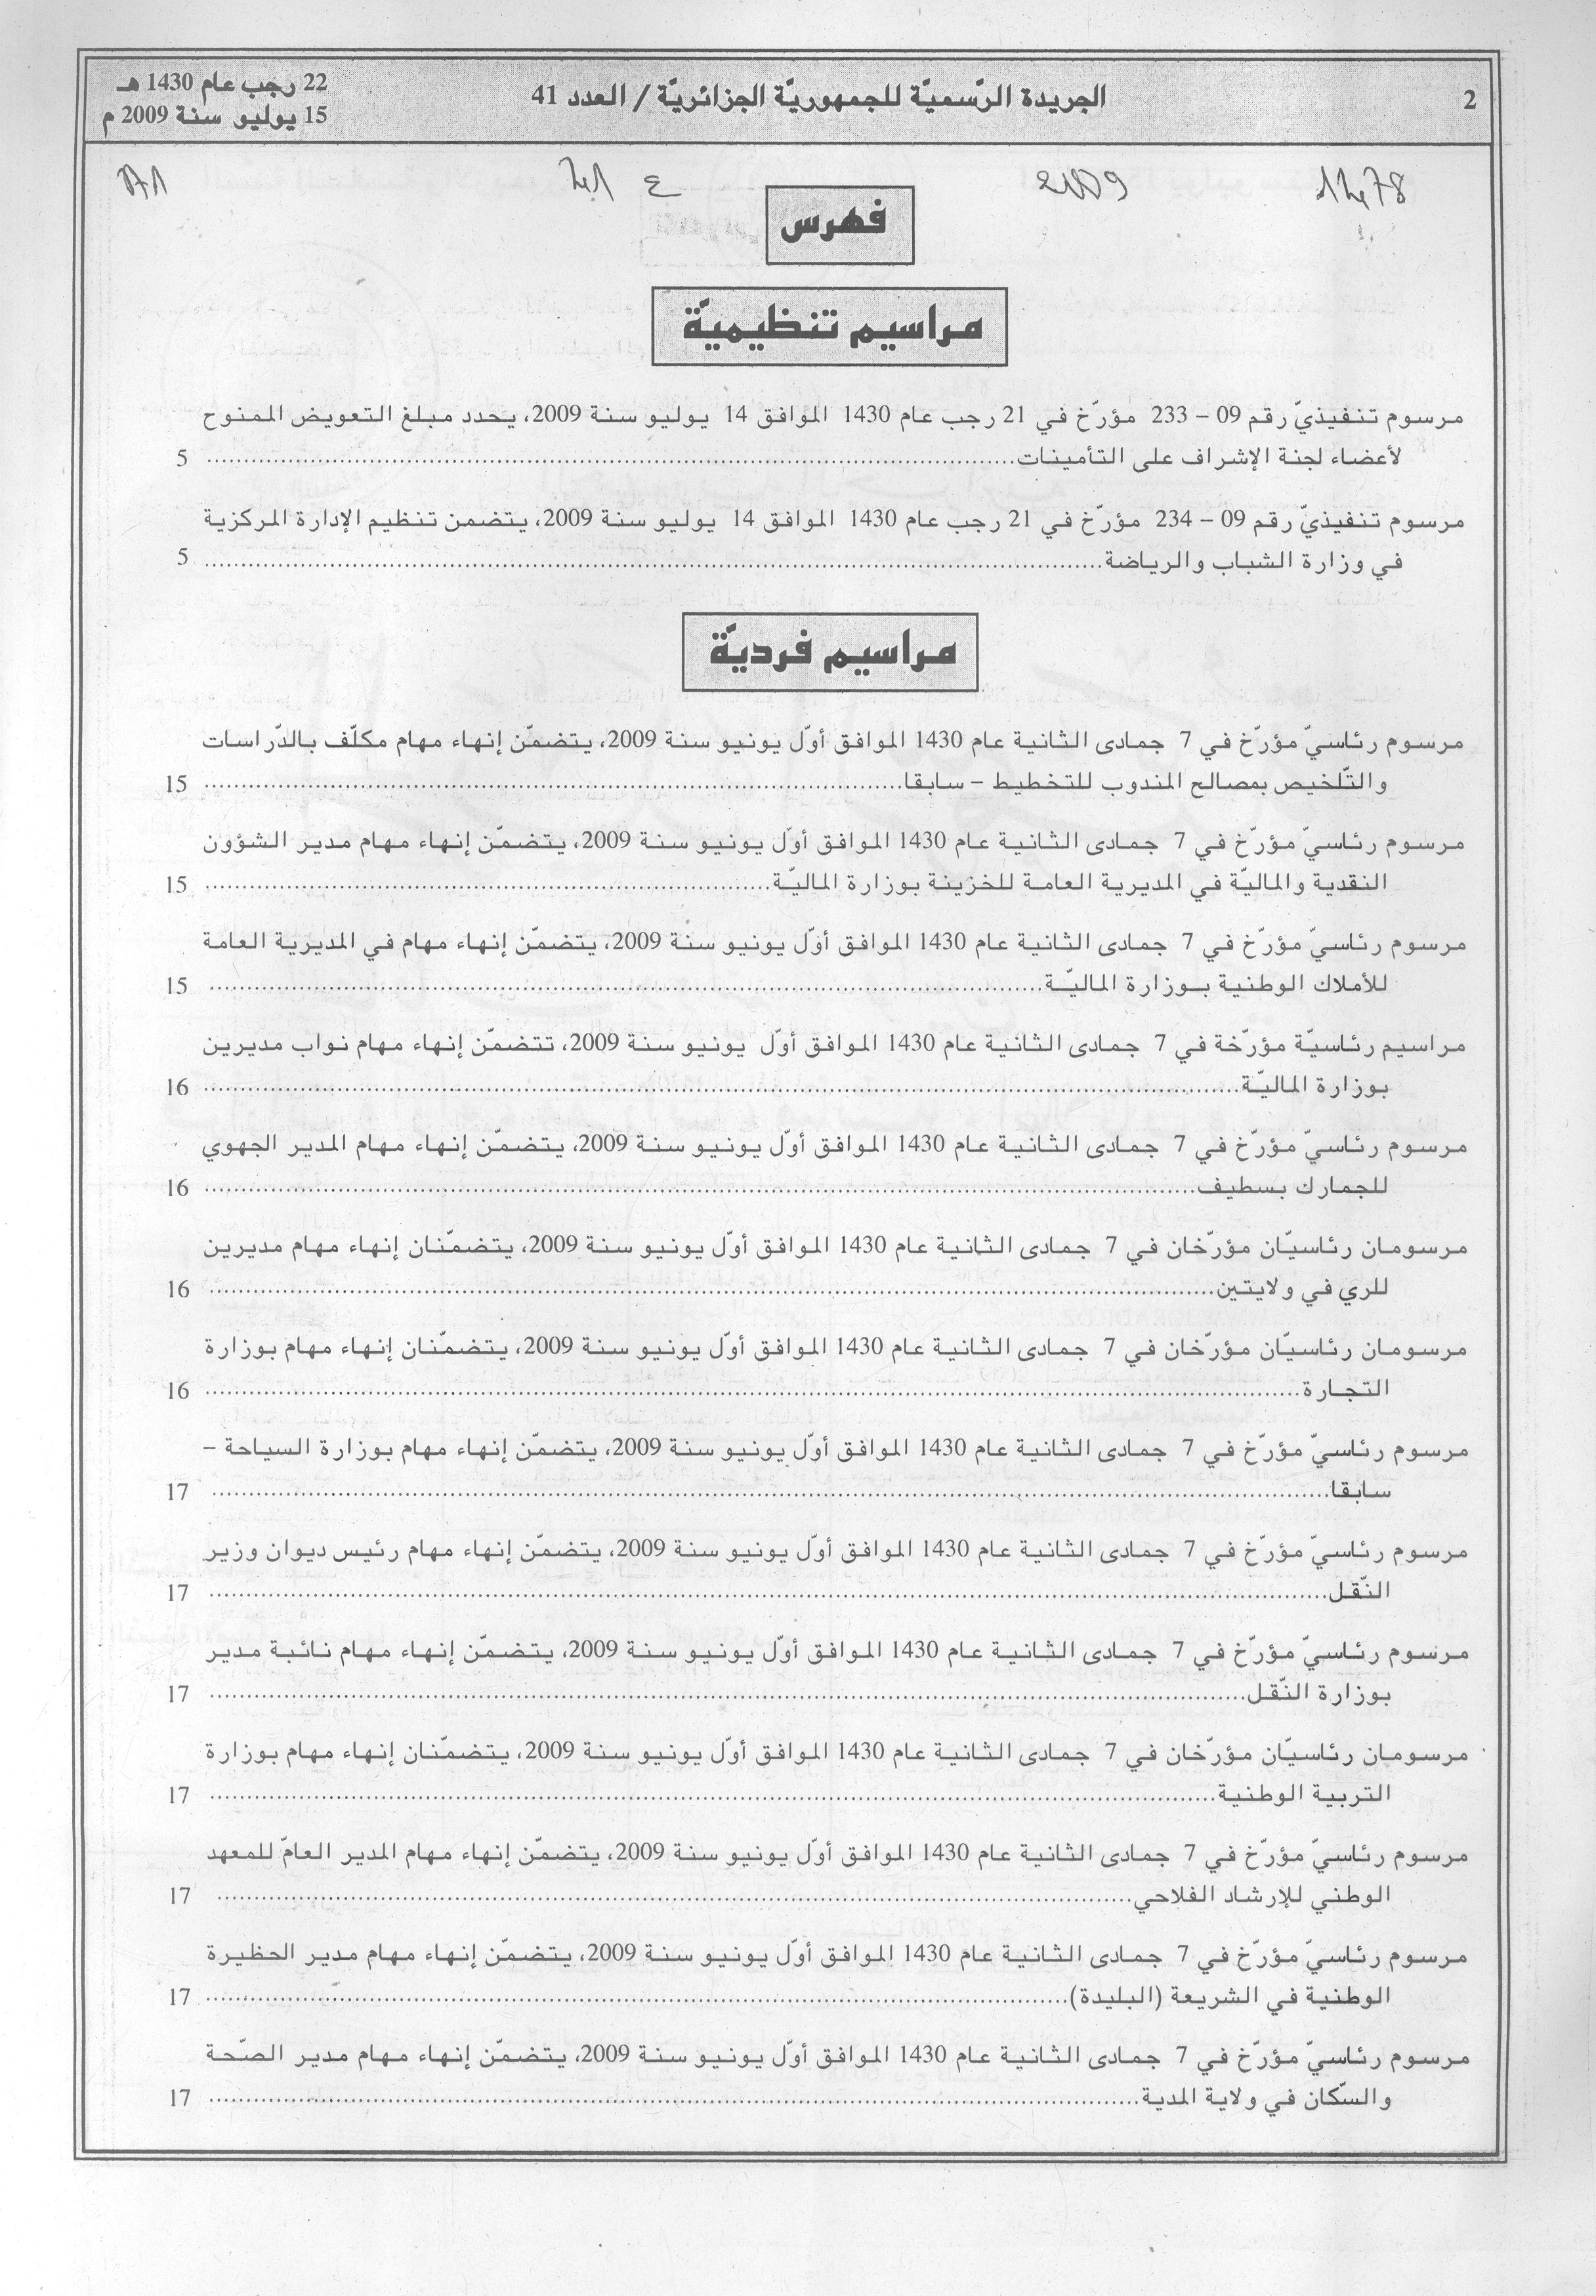 2
الجريدة الرّسميّة للجمهوريّة الجزائريّة / العدد 41
22 رجب عام 1430 هـ
15 يوليو سنة 2009 م
2009
ع
فهرس
مراسيم تنظيميّة
مرسوم تنفيذيّ رقم 09 – 233 مؤرّخ في 21 رجب عام 1430 الموافق 14 يوليو سنة 2009، يحدد مبلغ التعويض الممنوح
لأعضاء لجنة الإشراف على التأمينات.......... 5
مرسوم تنفيذيّ رقم 09 – 234 مؤرّخ في 21 رجب عام 1430 الموافق 14 يوليو سنة 2009، يتضمن تنظيم الإدارة المركزية
في وزارة الشباب والرياضة.......... 5
مراسيم فرديّة
مرسوم رئاسيّ مؤرّخ في 7 جمادى الثانية عام 1430 الموافق أوّل يونيو سنة 2009، يتضمّن إنهاء مهام مكلّف بالدّراسات
والتّلخيص بمصالح المندوب للتخطيط – سابقا.......... 15
مرسوم رئاسيّ مؤرّخ في 7 جمادى الثانية عام 1430 الموافق أوّل يونيو سنة 2009، يتضمّن إنهاء مهام مدير الشؤون
النقدية والماليّة في المديرية العامة للخزينة بوزارة الماليّة.......... 15
مرسوم رئاسيّ مؤرّخ في 7 جمادى الثانية عام 1430 الموافق أوّل يونيو سنة 2009، يتضمّن إنهاء مهام في المديرية العامة
للأملاك الوطنية بوزارة الماليّة.......... 15
مراسيم رئاسيّة مؤرّخة في 7 جمادى الثانية عام 1430 الموافق أوّل يونيو سنة 2009، تتضمّن إنهاء مهام نواب مديرين
بوزارة الماليّة.......... 16
مرسوم رئاسيّ مؤرّخ في 7 جمادى الثانية عام 1430 الموافق أوّل يونيو سنة 2009، يتضمّن إنهاء مهام المدير الجهوي
للجمارك بسطيف.......... 16
مرسومان رئاسيّان مؤرّخان في 7 جمادى الثانية عام 1430 الموافق أوّل يونيو سنة 2009، يتضمّنان إنهاء مهام مديرين
للري في ولايتين.......... 16
مرسومان رئاسيّان مؤرّخان في 7 جمادى الثانية عام 1430 الموافق أوّل يونيو سنة 2009، يتضمّنان إنهاء مهام بوزارة
التجارة.......... 16
مرسوم رئاسيّ مؤرّخ في 7 جمادى الثانية عام 1430 الموافق أوّل يونيو سنة 2009، يتضمّن إنهاء مهام بوزارة السياحة –
سابقا.......... 17
مرسوم رئاسيّ مؤرّخ في 7 جمادى الثانية عام 1430 الموافق أوّل يونيو سنة 2009، يتضمّن إنهاء مهام رئيس ديوان وزير
النّقل.......... 17
مرسوم رئاسيّ مؤرّخ في 7 جمادى الثانية عام 1430 الموافق أوّل يونيو سنة 2009، يتضمّن إنهاء مهام نائبة مدير
بوزارة النّقل.......... 17
مرسومان رئاسيّان مؤرّخان في 7 جمادى الثانية عام 1430 الموافق أوّل يونيو سنة 2009، يتضمّنان إنهاء مهام بوزارة
التربية الوطنية.......... 17
مرسوم رئاسيّ مؤرّخ في 7 جمادى الثانية عام 1430 الموافق أوّل يونيو سنة 2009، يتضمّن إنهاء مهام المدير العامّ للمعهد
الوطني للإرشاد الفلاحي.......... 17
مرسوم رئاسيّ مؤرّخ في 7 جمادى الثانية عام 1430 الموافق أوّل يونيو سنة 2009، يتضمّن إنهاء مهام مدير الحظيرة
الوطنية في الشريعة (البليدة).......... 17
مرسوم رئاسيّ مؤرّخ في 7 جمادى الثانية عام 1430 الموافق أوّل يونيو سنة 2009، يتضمّن إنهاء مهام مدير الصّحة
والسّكان في ولاية المدية.......... 17